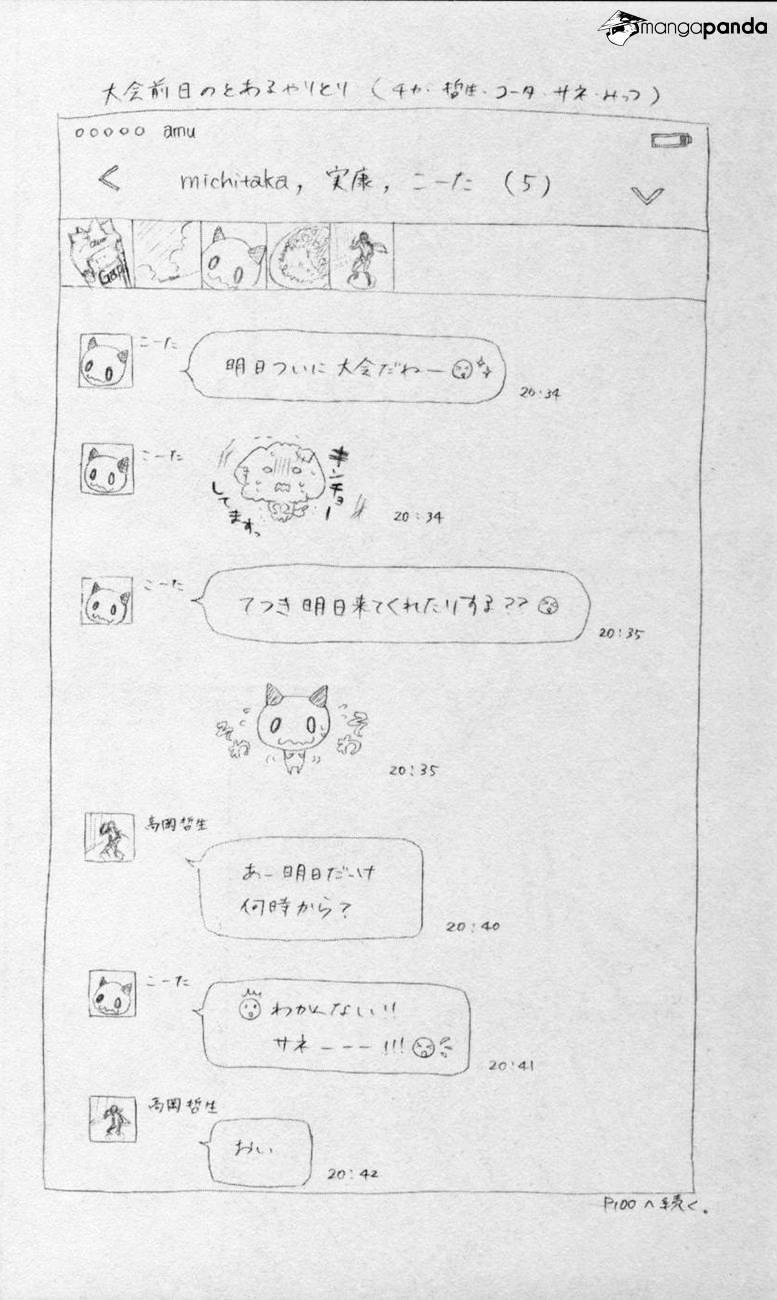 mangapanda
大会前日のとあるやりとり(チカ・哲生・コータ・サネ・みっつ)
ooooo amu
< michitaka, 実康, こーた (5)
こーた
明日ついに大会だねー
20:34
こーた
キンチョー
してますっ
20:34
こーた
てつき明日来てくれたりする??
20:35
そわ
そわ
20:35
高岡哲生
あー明日だーけ
何時から?
20:40
こーた
わかんない!!
サネーーー!!!
20:41
高岡哲生
おい
20:42
P100へ続く。